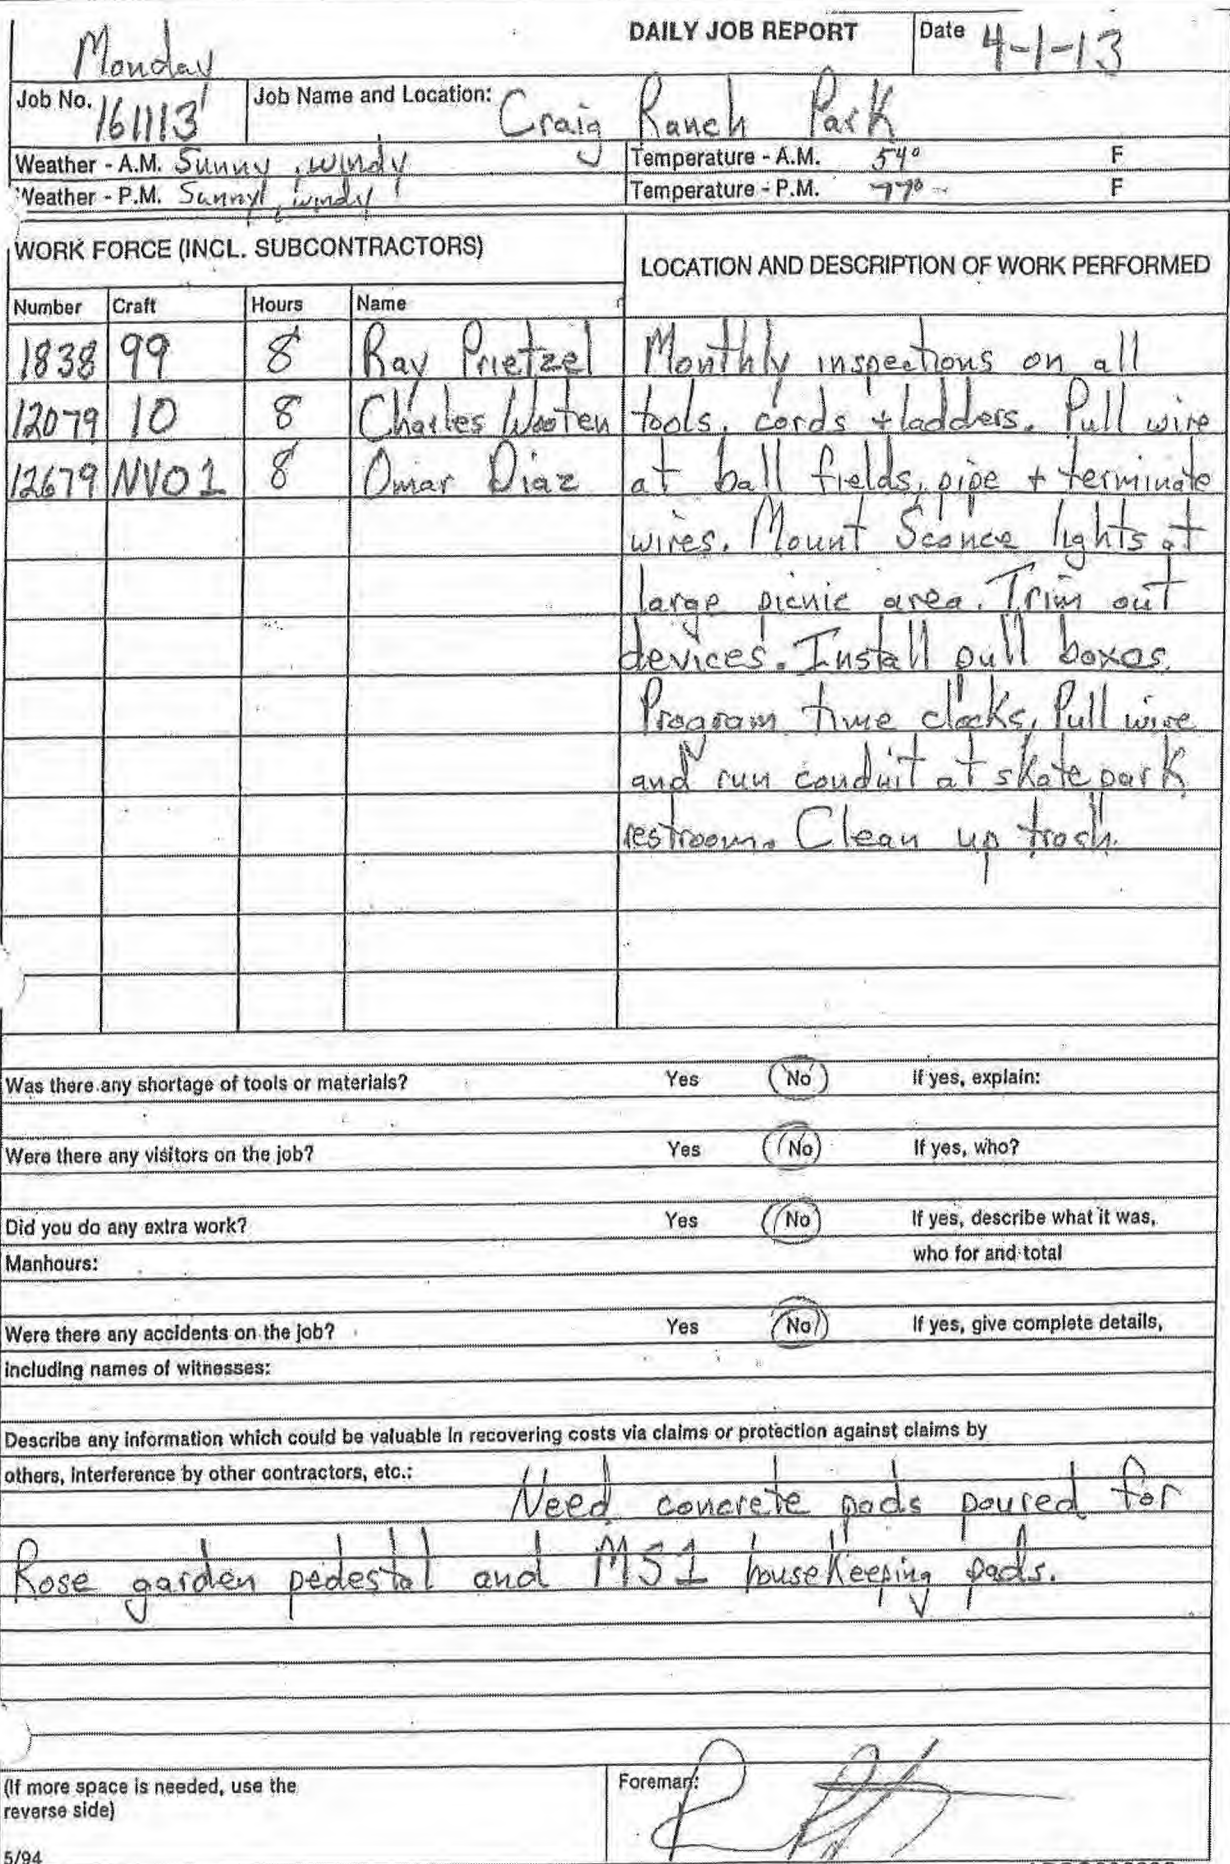 Monday
DAILY JOB REPORT
Date 4-1-13
Job No. 161113
Job Name and Location: Craig Ranch Park
Weather - A.M. Sunny, windy
Temperature - A.M. 54° F
Weather - P.M. Sunny, windy
Temperature - P.M. 77° F
WORK FORCE (INCL. SUBCONTRACTORS)
LOCATION AND DESCRIPTION OF WORK PERFORMED
Number Craft Hours Name
1838 99 8 Ray Prietzel Monthly inspections on all
12079 10 8 Charles Wooten tools, cords + ladders. Pull wire
12679 NV01 8 Omar Diaz at ball fields, pipe + terminate
wires. Mount Sconce lights at
large picnic area. Trim out
devices. Install pull boxes.
Program time clocks, Pull wire
and run conduit at skate park
restroom. Clean up trash.
Was there any shortage of tools or materials? Yes No If yes, explain:
Were there any visitors on the job? Yes No If yes, who?
Did you do any extra work? Yes No If yes, describe what it was,
who for and total
Manhours:
Were there any accidents on the job? Yes No If yes, give complete details,
including names of witnesses:
Describe any information which could be valuable in recovering costs via claims or protection against claims by
others, interference by other contractors, etc.: Need concrete pads poured for
Rose garden pedestal and MS1 housekeeping pads.
(If more space is needed, use the
reverse side)
Foreman:
5/94